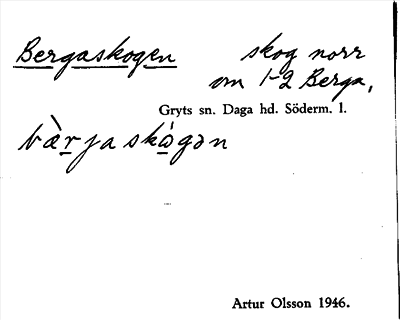 Bergaskogen
skog norr
om 1-2 Berga,
Gryts sn. Daga hd. Söderm. l.
bærjaskógən
Artur Olsson 1946.